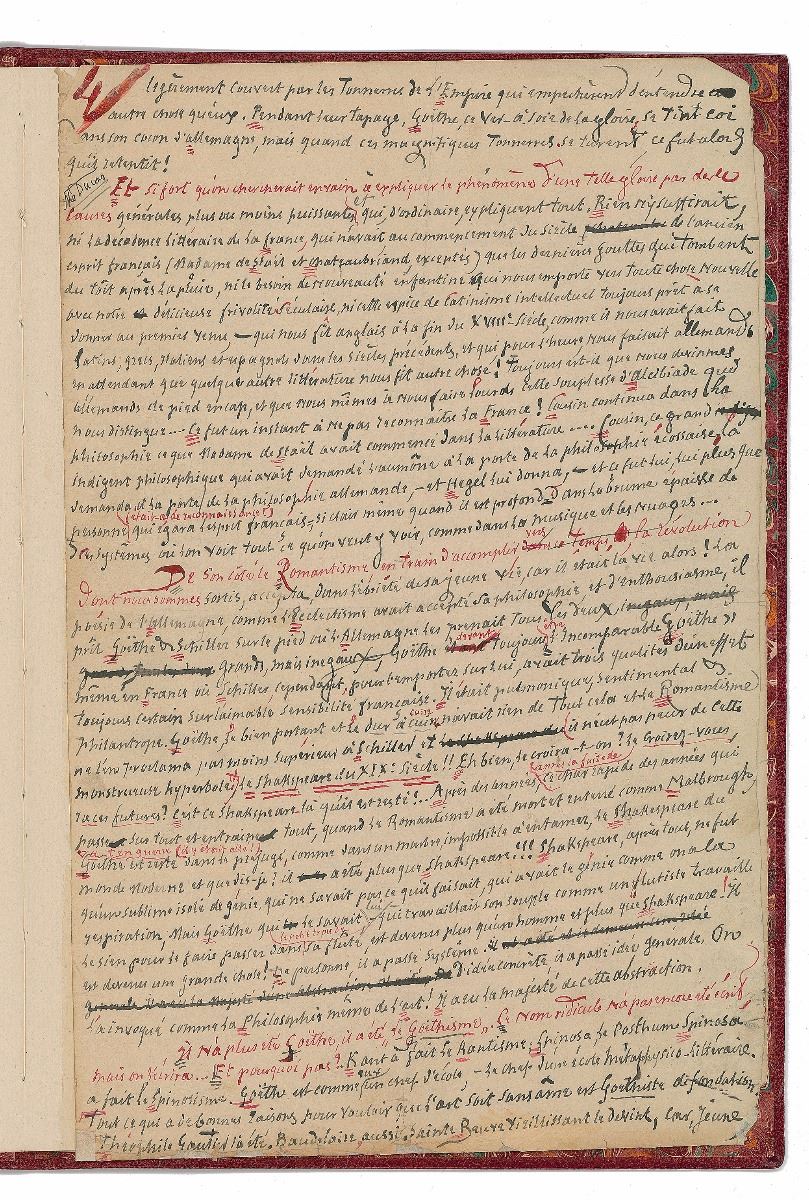 4/
légèrement couvert par les Tonnerres de L'Empire qui empêchèrent d'entendre
autre chose qu'eux. Pendant leur tapage, Goëthe, ce ver-à-soie de la gloire, se Tint coi
dans son cocon d'allemagne, mais quand ces magnifiques Tonnerres se turent, ce fut alors
qu'il retentit!
Et si fort qu'on chercherait en vain à expliquer le phénomène d'une telle gloire par de le
causes générales plus ou moins puissantes et qui, d'ordinaire, expliquent tout. Rien n'y suffirait,
ni la décadence littéraire de la France, qui n'avait au commencement du siècle de l'ancien
esprit français (Madame de Staël et Chateaubriand exceptés) que les dernières gouttes qui tombent
du toit après la pluie, ni le besoin de nouveauté enfantine qui nous emporte vers toute chose nouvelle
avec notre délicieuse frivolité séculaire, ni cette espèce de latinisme intellectuel toujours prêt à se
donner au premier venu, — qui nous fit anglais à la fin du XVIIIe Siècle, comme il nous avait fait
latins, grecs, italiens et espagnols dans les siècles précédents, et qui pour l'heure nous faisait allemands
en attendant que quelque autre littérature nous fît autre chose! Toujours est-il que nous devînmes
allemands de pied en cap, et que nous mêmes à nous faire lourds cette souplesse d'Alcibiade qui
nous distingue... Ce fut un instant à ne pas reconnaître la France! Cousin continua dans la
philosophie ce que Madame de Staël avait commencé dans la littérature.... Cousin, ce grand
indigent philosophique qui avait demandé l'aumône à la porte de la philosophie écossaise, la
demanda à la porte de la philosophie allemande, — et Hegel lui donna, — et ce fut lui, lui plus que
personne (était-ce de reconnaissance?) qui égara l'esprit français, si clair même quand il est profond, dans la brume épaisse de
ces systèmes où l'on voit tout ce qu'on veut y voir, comme dans la musique et les nuages...
De son côté le Romantisme, en train d'accomplir vers ce temps, la révolution
dont nous sommes sortis, accepta, dans l'ébriété de sa jeune vie, car il était la vie alors! la
poésie de l'allemagne, comme l'Eclectisme avait accepté sa philosophie, et d'enthousiasme, il
prit Goëthe & Schiller sur le pied où l'Allemagne les prenait tous les deux,
grands, mais inégaux, Goëthe devant toujours être l'incomparable Goëthe &
même en France où Schiller cependant, pour l'emporter sur lui, avait trois qualités d'un effet
toujours certain sur l'aimable sensibilité française. Il était pulmonique, sentimental &
philantrope. Goëthe, le bien portant et le dur à cuire n'avait rien de tout cela et le Romantisme
ne l'en proclama pas moins supérieur à Schiller et il n'eut pas peur de cette
monstrueuse hyperbole: le Shakspeare du XIXe Siècle!! Eh bien, le croira-t-on? le croirez-vous,
races futures? c'est ce Shakspeare là qu'il est resté!.. Après des années, ce char rapide des années qui
passe sur tout et entraine tout, quand le Romantisme a été mort et enterré comme Malbrough
Goëthe est resté dans le préjugé, comme dans un marbre, impossible à entamer, le Shakespeare du
monde moderne et que dis-je? il a été plus que Shakspeare!!! Shakspeare, après tout, ne fut
qu'un sublime isolé de génie, qui ne savait pas ce qu'il faisait, qui avait le génie comme on a la
respiration, mais Goëthe qui le savait — lui — qui travaillait son souple comme un flutiste travaille
le sien pour le faire passer dans sa flûte, est devenu plus qu'un homme et plus que Shakspeare! Il
est devenu une grande chose! De personne, il a passé Système.
D'idée concrète il a passé idée générale. On
l'a invoqué comme la Philosophie même de l'art! Il a eu la majesté de cette abstraction.
Il n'a plus été Goëthe, il a été „le Goëthisme". Ce nom ridicule n'a pas encore été écrit,
mais on l'écrira... Et pourquoi pas?. Kant a fait le Kantisme; Spinosa, le Posthume Spinosa
a fait le Spinosisme. Goëthe est comme eux un chef d'école — le chef d'une école métaphysico-littéraire.
Tout ce qui a de bonnes raisons pour vouloir que l'art soit sans âme est Goëthiste de fondation.
Théophile Gautier l'a été. Baudelaire, aussi. Sainte Beuve vieillissant le devint, car, jeune